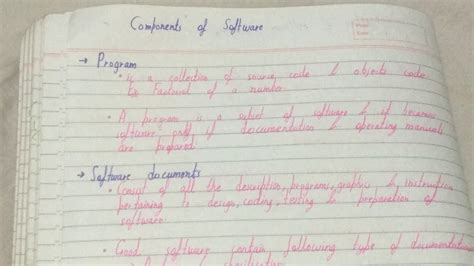 Components of Software
→ Program
• is a collection of source code & objects code
Ex Factorial of a number.
• A program is a subset of software & it becomes
software only if documentation & operating manuals
are prepared.
→ Software documents
• Consist of all the description, programs, graphics & instruction
pertaining to design, coding, testing & preparation of
software.
• Good software contain following type of documentation